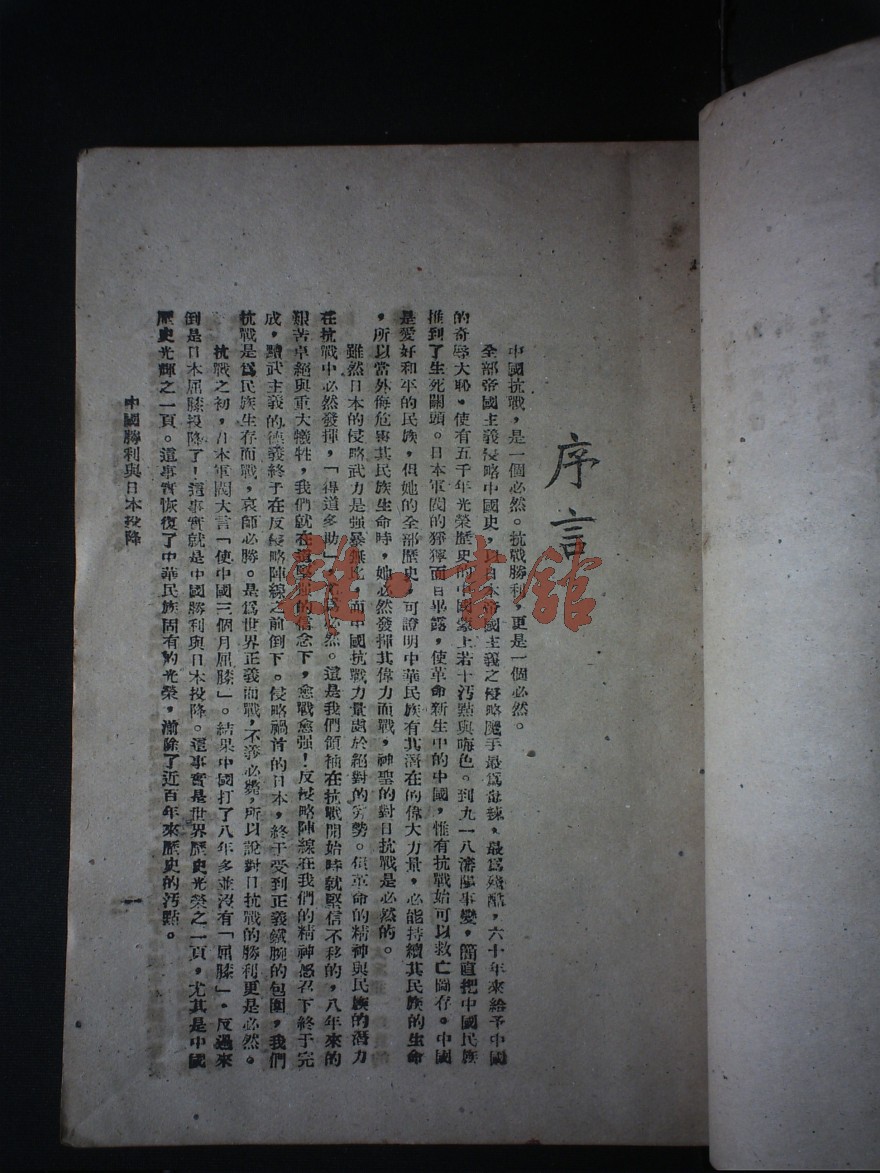 序言
中國抗戰，是一個必然。抗戰勝利，更是一個必然。
全部帝國主義侵略中國史，以日本帝國主義之侵略魔手最爲毒辣、最爲殘酷，六十年來給予中國
的奇辱大恥，使有五千年光榮歷史的中國蒙上若干汚點與晦色。到九一八瀋陽事變，簡直把中國民族
推到了生死關頭。日本軍閥的猙獰面目畢露，使革命新生中的中國，惟有抗戰始可以救亡圖存。中國
是愛好和平的民族，但她的全部歷史，可證明中華民族有其潛在的偉大力量，必能持續其民族的生命
，所以當外侮危害其民族生命時，她必然發揮其偉力而戰，神聖的對日抗戰是必然的。
雖然日本的侵略武力是強暴無比，而中國抗戰力量處於絕對的劣勢。但革命的精神與民族的潛力
在抗戰中必然發揮，「得道多助」，必然。這是我們領袖在抗戰開始時就堅信不移的，八年來的
艱苦卓絕與重大犧牲，我們就在這堅強的信念下，愈戰愈强！反侵略陣線在我們的精神感召下終于完
成，黷武主義的德義終于在反侵略陣線之前倒下。侵略禍首的日本，終于受到正義鐵腕的包圍，我們
抗戰是爲民族生存而戰，哀師必勝。是爲世界正義而戰，不義必斃，所以說對日抗戰的勝利更是必然。
抗戰之初，日本軍閥大言「使中國三個月屈膝」。結果中國打了八年多並沒有「屈膝」，反過來
倒是日本屈膝投降了！這事實就是中國勝利與日本投降。這事實是世界歷史光榮之一頁，尤其是中國
歷史光輝之一頁。這事實恢復了中華民族固有的光榮，湔除了近百年來歷史的汚點。
中國勝利與日本投降
一
雜·書館